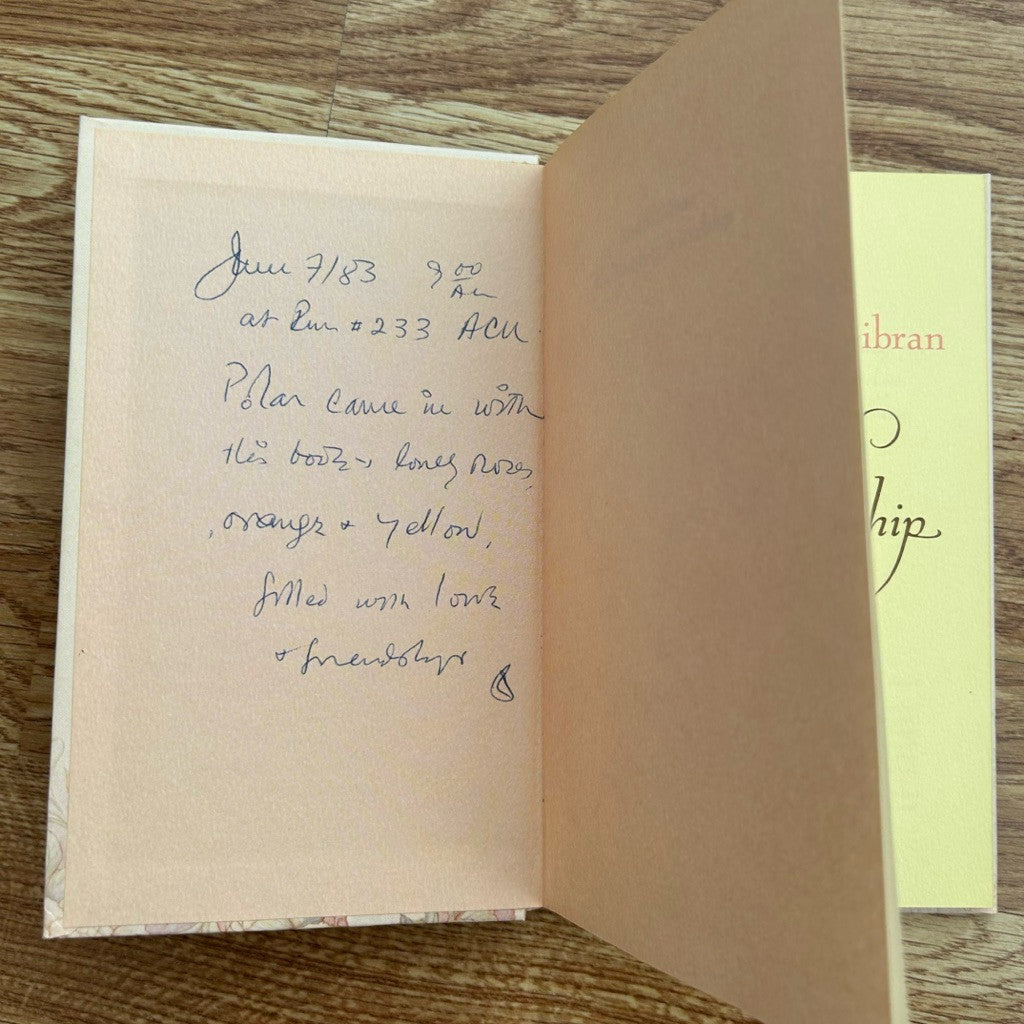 June 7/83 9 00 AM
at Rm #233 ACU
came in with
this book & lovely roses,
orange & yellow,
filled with love
& friendship
ibran
hip